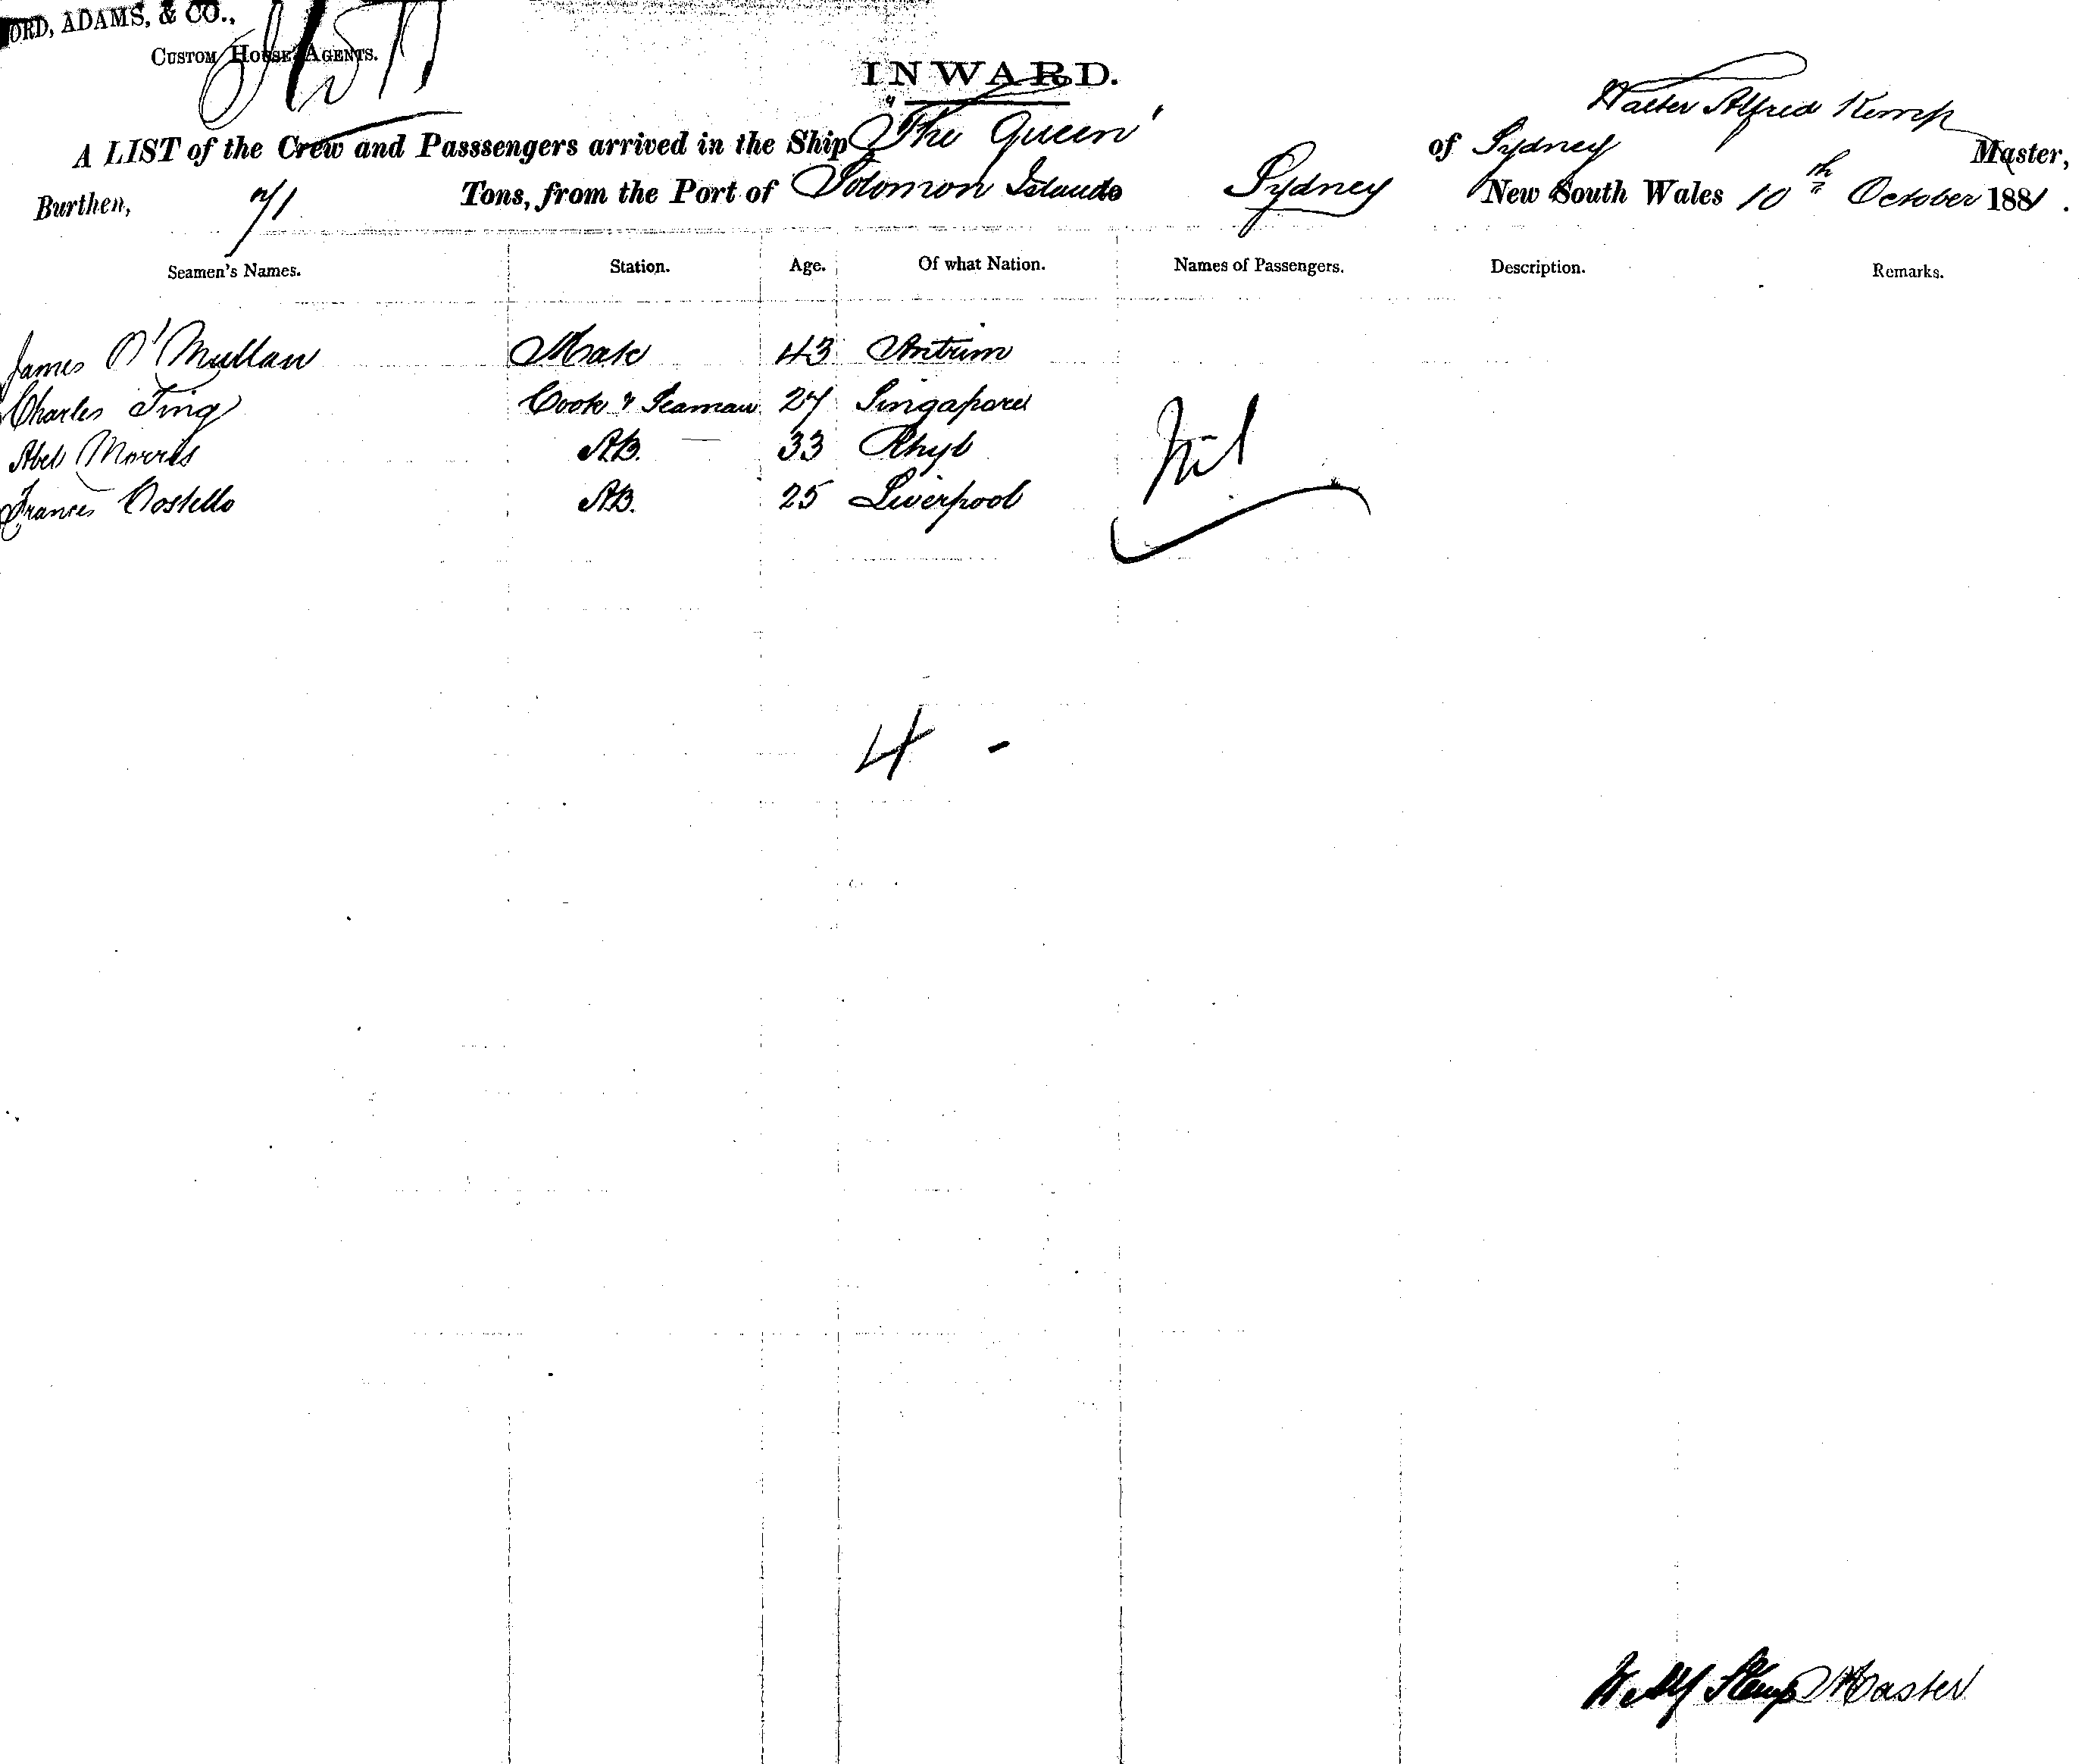 ORD, ADAMS, & CO.,
CUSTOM HOUSE AGENTS.
INWARD.
Walter Alfred Kemp
A LIST of the Crew and Passsengers arrived in the Ship "The Queen" of Sydney Master,
Burthen, 71 Tons, from the Port of Solomon Islands Sydney New South Wales 10th October 1881.
Seamen's Names. Station. Age. Of what Nation. Names of Passengers. Description. Remarks.
James O'Mullan Mate 43 Antrim
Charles Ting Cook & Seaman 27 Singapore
Abel Morris AB. 33 Rhyl
Nil
Frances Costello AB. 25 Liverpool
4 -
W Alf Kemp Master